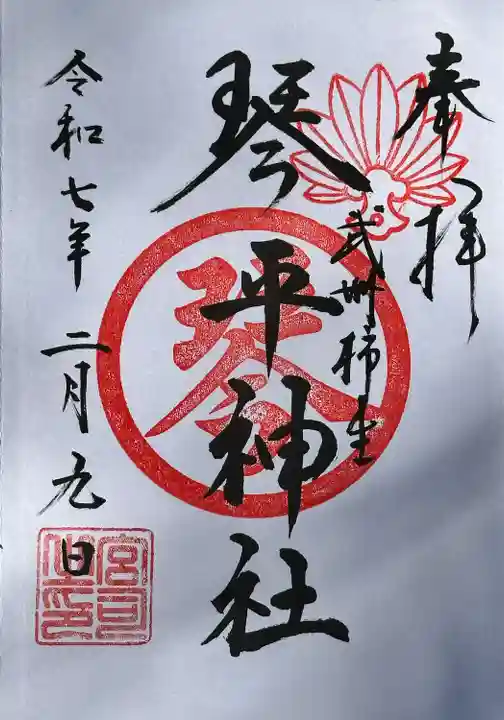 奉拝
武州柿生
琴平神社
琴
令和七年二月九日
宮司之印